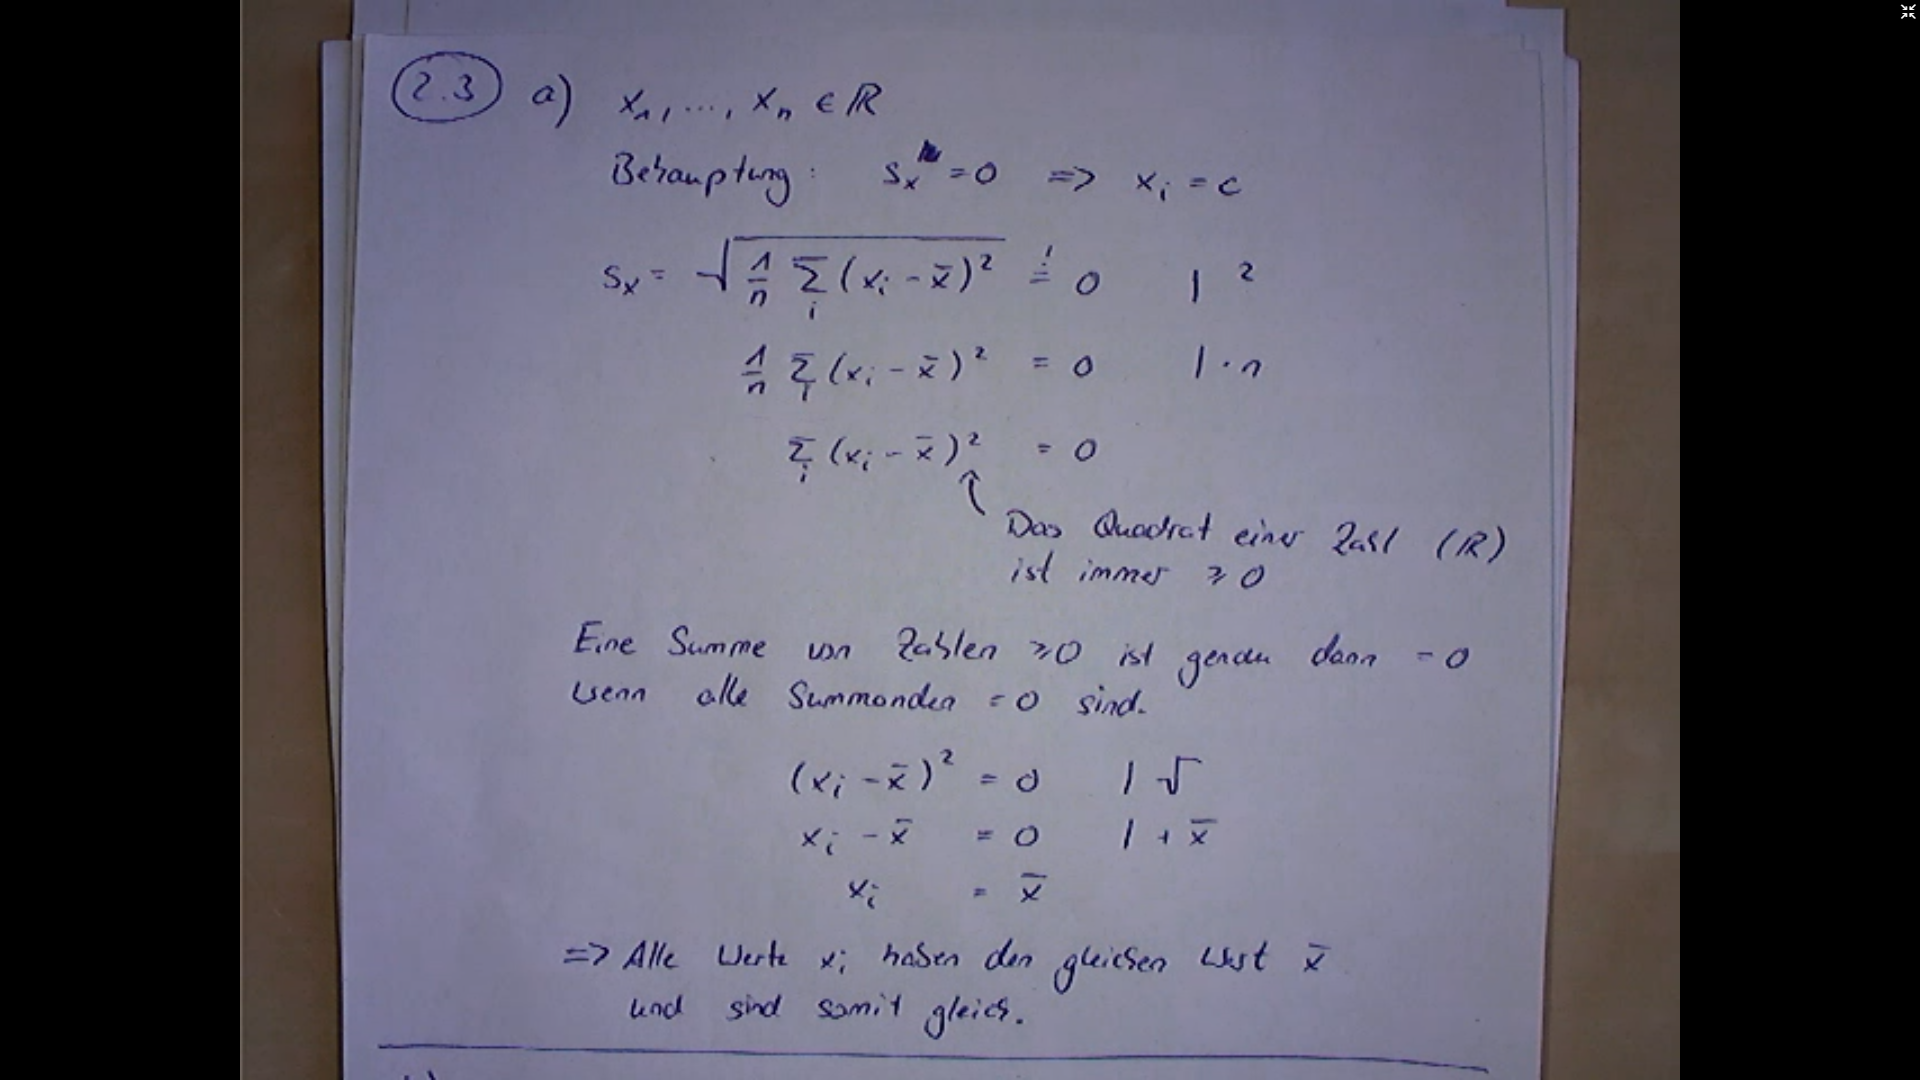 2.3 a) x₁, ..., xₙ ∈ ℝ
Behauptung: sₓ = 0 => xᵢ = c
sₓ = √(1/n Σᵢ (xᵢ - x̄)²) =! 0 | ²
1/n Σᵢ (xᵢ - x̄)² = 0 | · n
Σᵢ (xᵢ - x̄)² = 0
Das Quadrat einer Zahl (ℝ)
ist immer ≥ 0
Eine Summe von Zahlen ≥0 ist genau dann = 0
wenn alle Summanden = 0 sind.
(xᵢ - x̄)² = 0 | √
xᵢ - x̄ = 0 | + x̄
xᵢ = x̄
=> Alle Werte xᵢ haben den gleichen Wert x̄
und sind somit gleich.